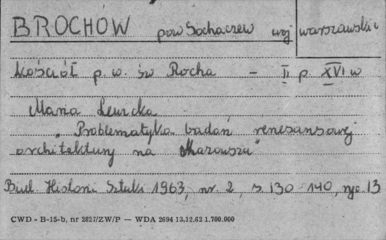 BROCHÓW pow Sochaczew woj warszawskie
Kościół p. w. św Rocha – II p. XVI w
Maria Lewicka
"Problematyka badań renesansowej
architektury na Mazowszu"
Biul. Historii Sztuki 1963, nr. 2, s. 130-140, ryc. 13
CWD - B-15-b, nr 2827/ZW/P — WDA 2694 13.12.62 1.700.000